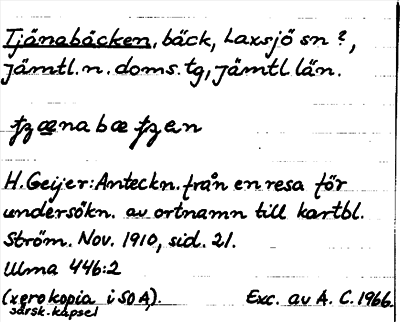 Tjänabäcken, bäck, Laxsjö sn?,
Jämtl. n. doms. tg, Jämtl. län.
H. Geijer: Anteckn. från en resa för
undersökn. av ortnamn till kartbl.
Ström. Nov. 1910, sid. 21.
Ulma 446:2
(xerokopia i SOA). Exc. av A. C. 1966.
särsk. kapsel